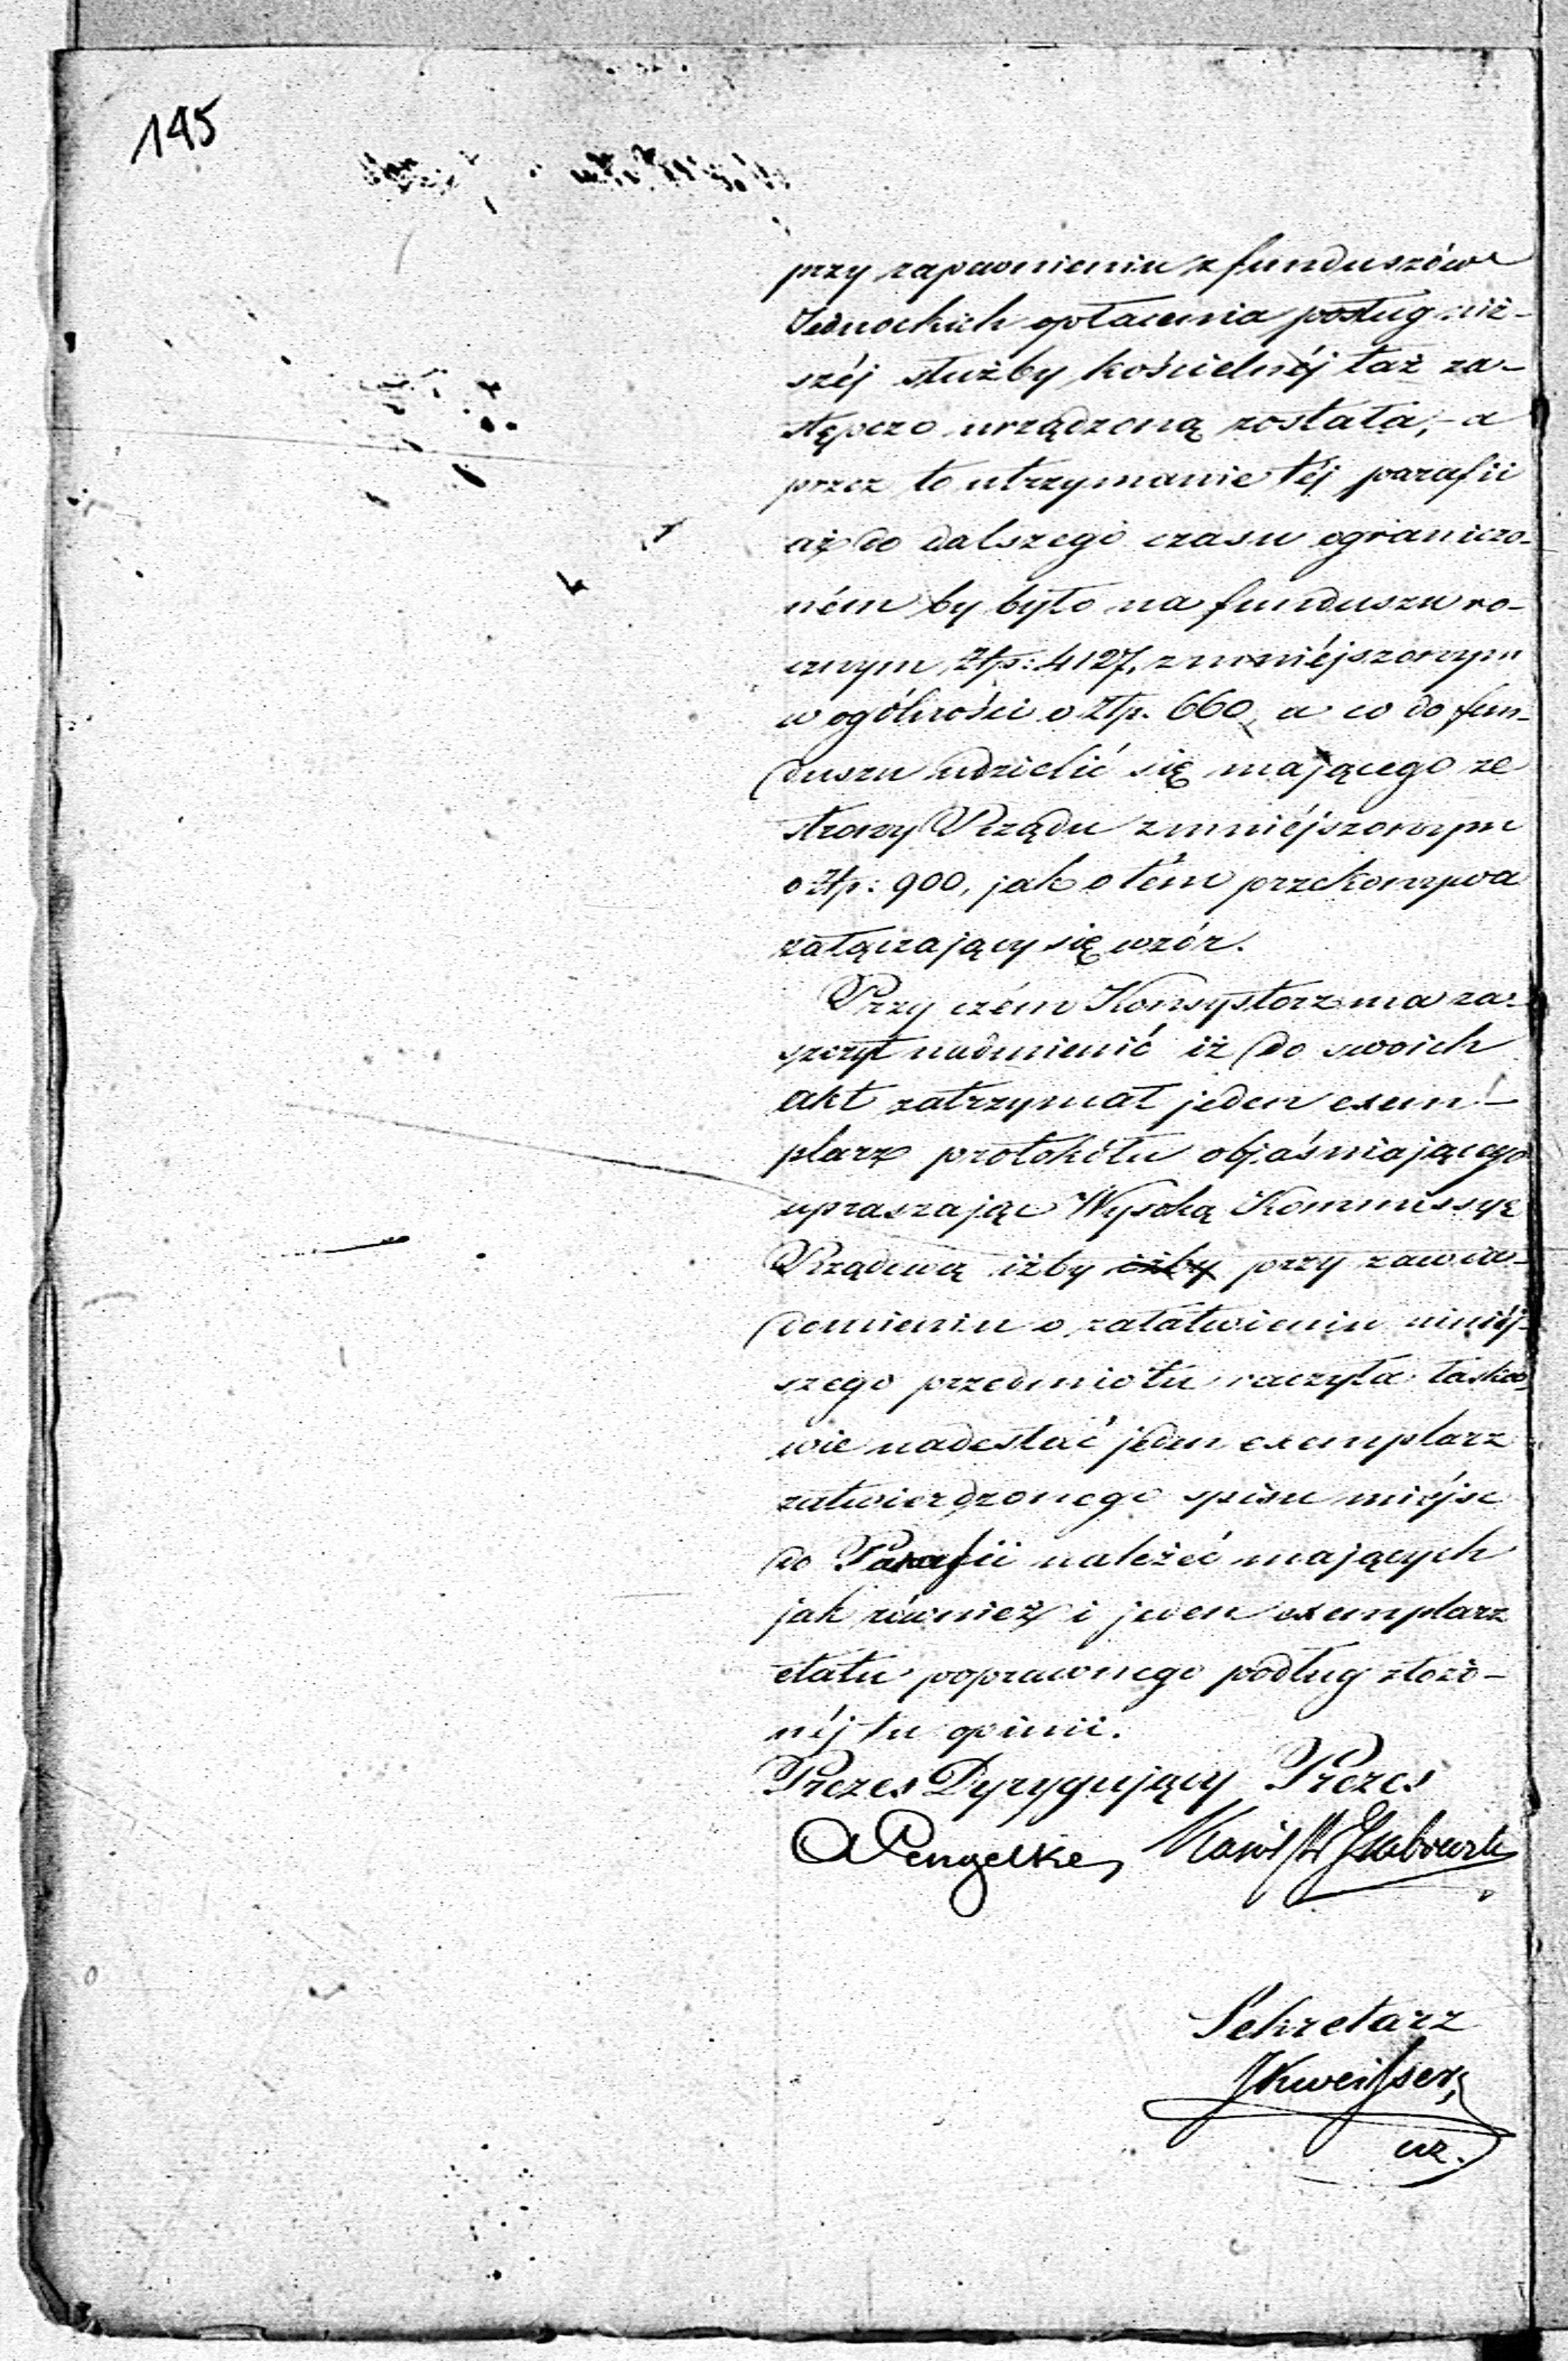 145
przy zapewnieniu z funduszów
opłacenia posług niż-
széj służby kościelnéj taż za-
stępczo urządzoną została, - a
przez to utrzymanie téj parafii
aż do dalszego czasu ograniczo-
ném by było na funduszu ro-
cznym Złp: 4127, zmniéjszonym
w ogólności o Złp. 660, a co do fun-
duszu udzielić się mającego ze
strony Rządu zmniéjszonym
o Złp: 900, jak o tém przekonywa
załączający się wzór.
Przy czém Konsystorz ma za-
szczyt nadmienić iż do swoich
akt zatrzymał jeden exem-
plarz protokółu objaśniającego
upraszając Wysoką Kommissyę
Rządową iżby iżby przy zawia-
domieniu o załatwieniu niniéj-
szego przedmiotu raczyła łaska-
wie nadesłać jeden exemplarz
zatwierdzonego spisu miéjsc
do Parafii należéć mających
jak również i jeden exemplarz
etatu poprawnego podług złożo-
néj tu opinii.
Prezes Dyrygujący Prezes
Pengelke,
Sekretarz